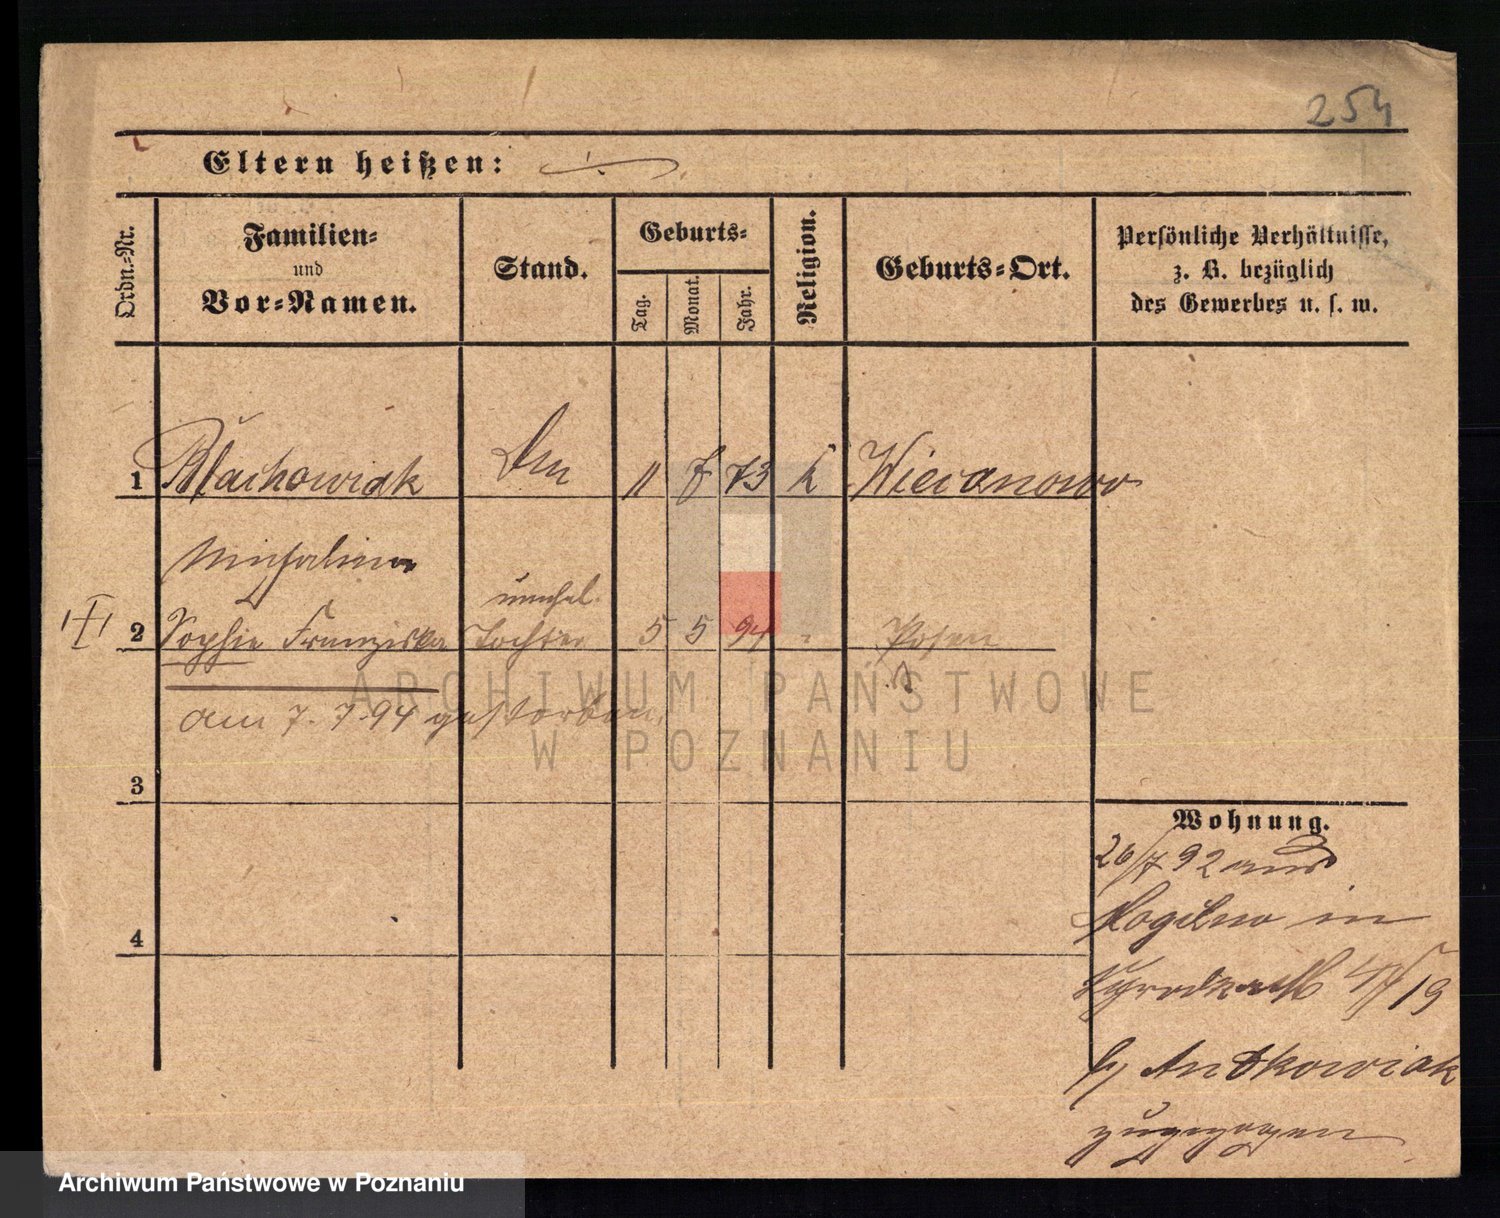 254
Eltern heißen:
Ordn.-Nr.
Familien-
und
Vor-Namen.
Stand.
Geburts-
Tag.
Monat.
Jahr.
Religion.
Geburts-Ort.
Persönliche Verhältnisse,
z. B. bezüglich
des Gewerbes u. s. w.
1 Blachowiak 11 73 k Wiecanowo
Michalina
unehel.
2 Sophie Franziska Tochter 5 5 94 Posen
am 7. 7. 94 gestorben.
ARCHIWUM PAŃSTWOWE
W POZNANIU
3
Wohnung.
26/7 92 aus
Mogilno in
4
19
b/ Antkowiak
zugezogen
Archiwum Państwowe w Poznaniu